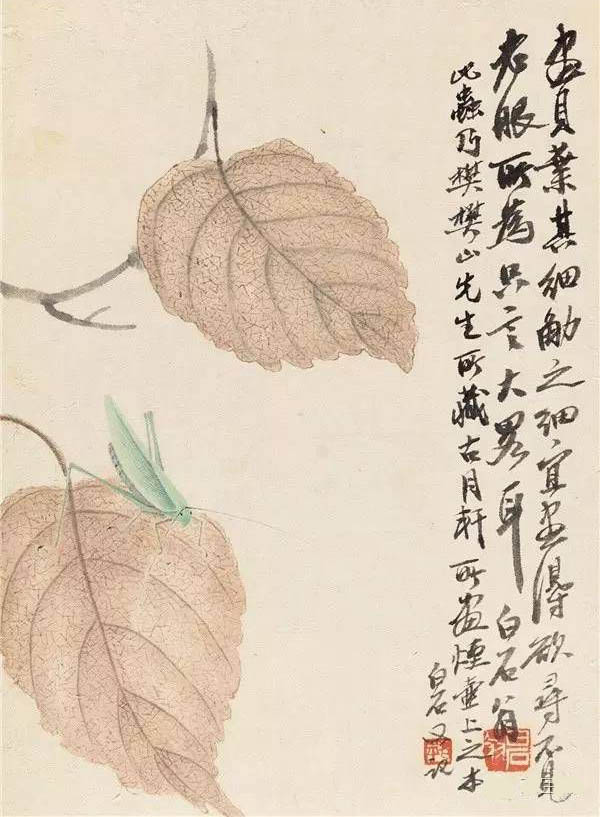 畫貝葉其細觔之細宜畫得欲尋不見
老眼所為只言大畧耳白石翁
此蟲乃樊樊山先生所藏古月軒所畫煙壺上之本
白石又記